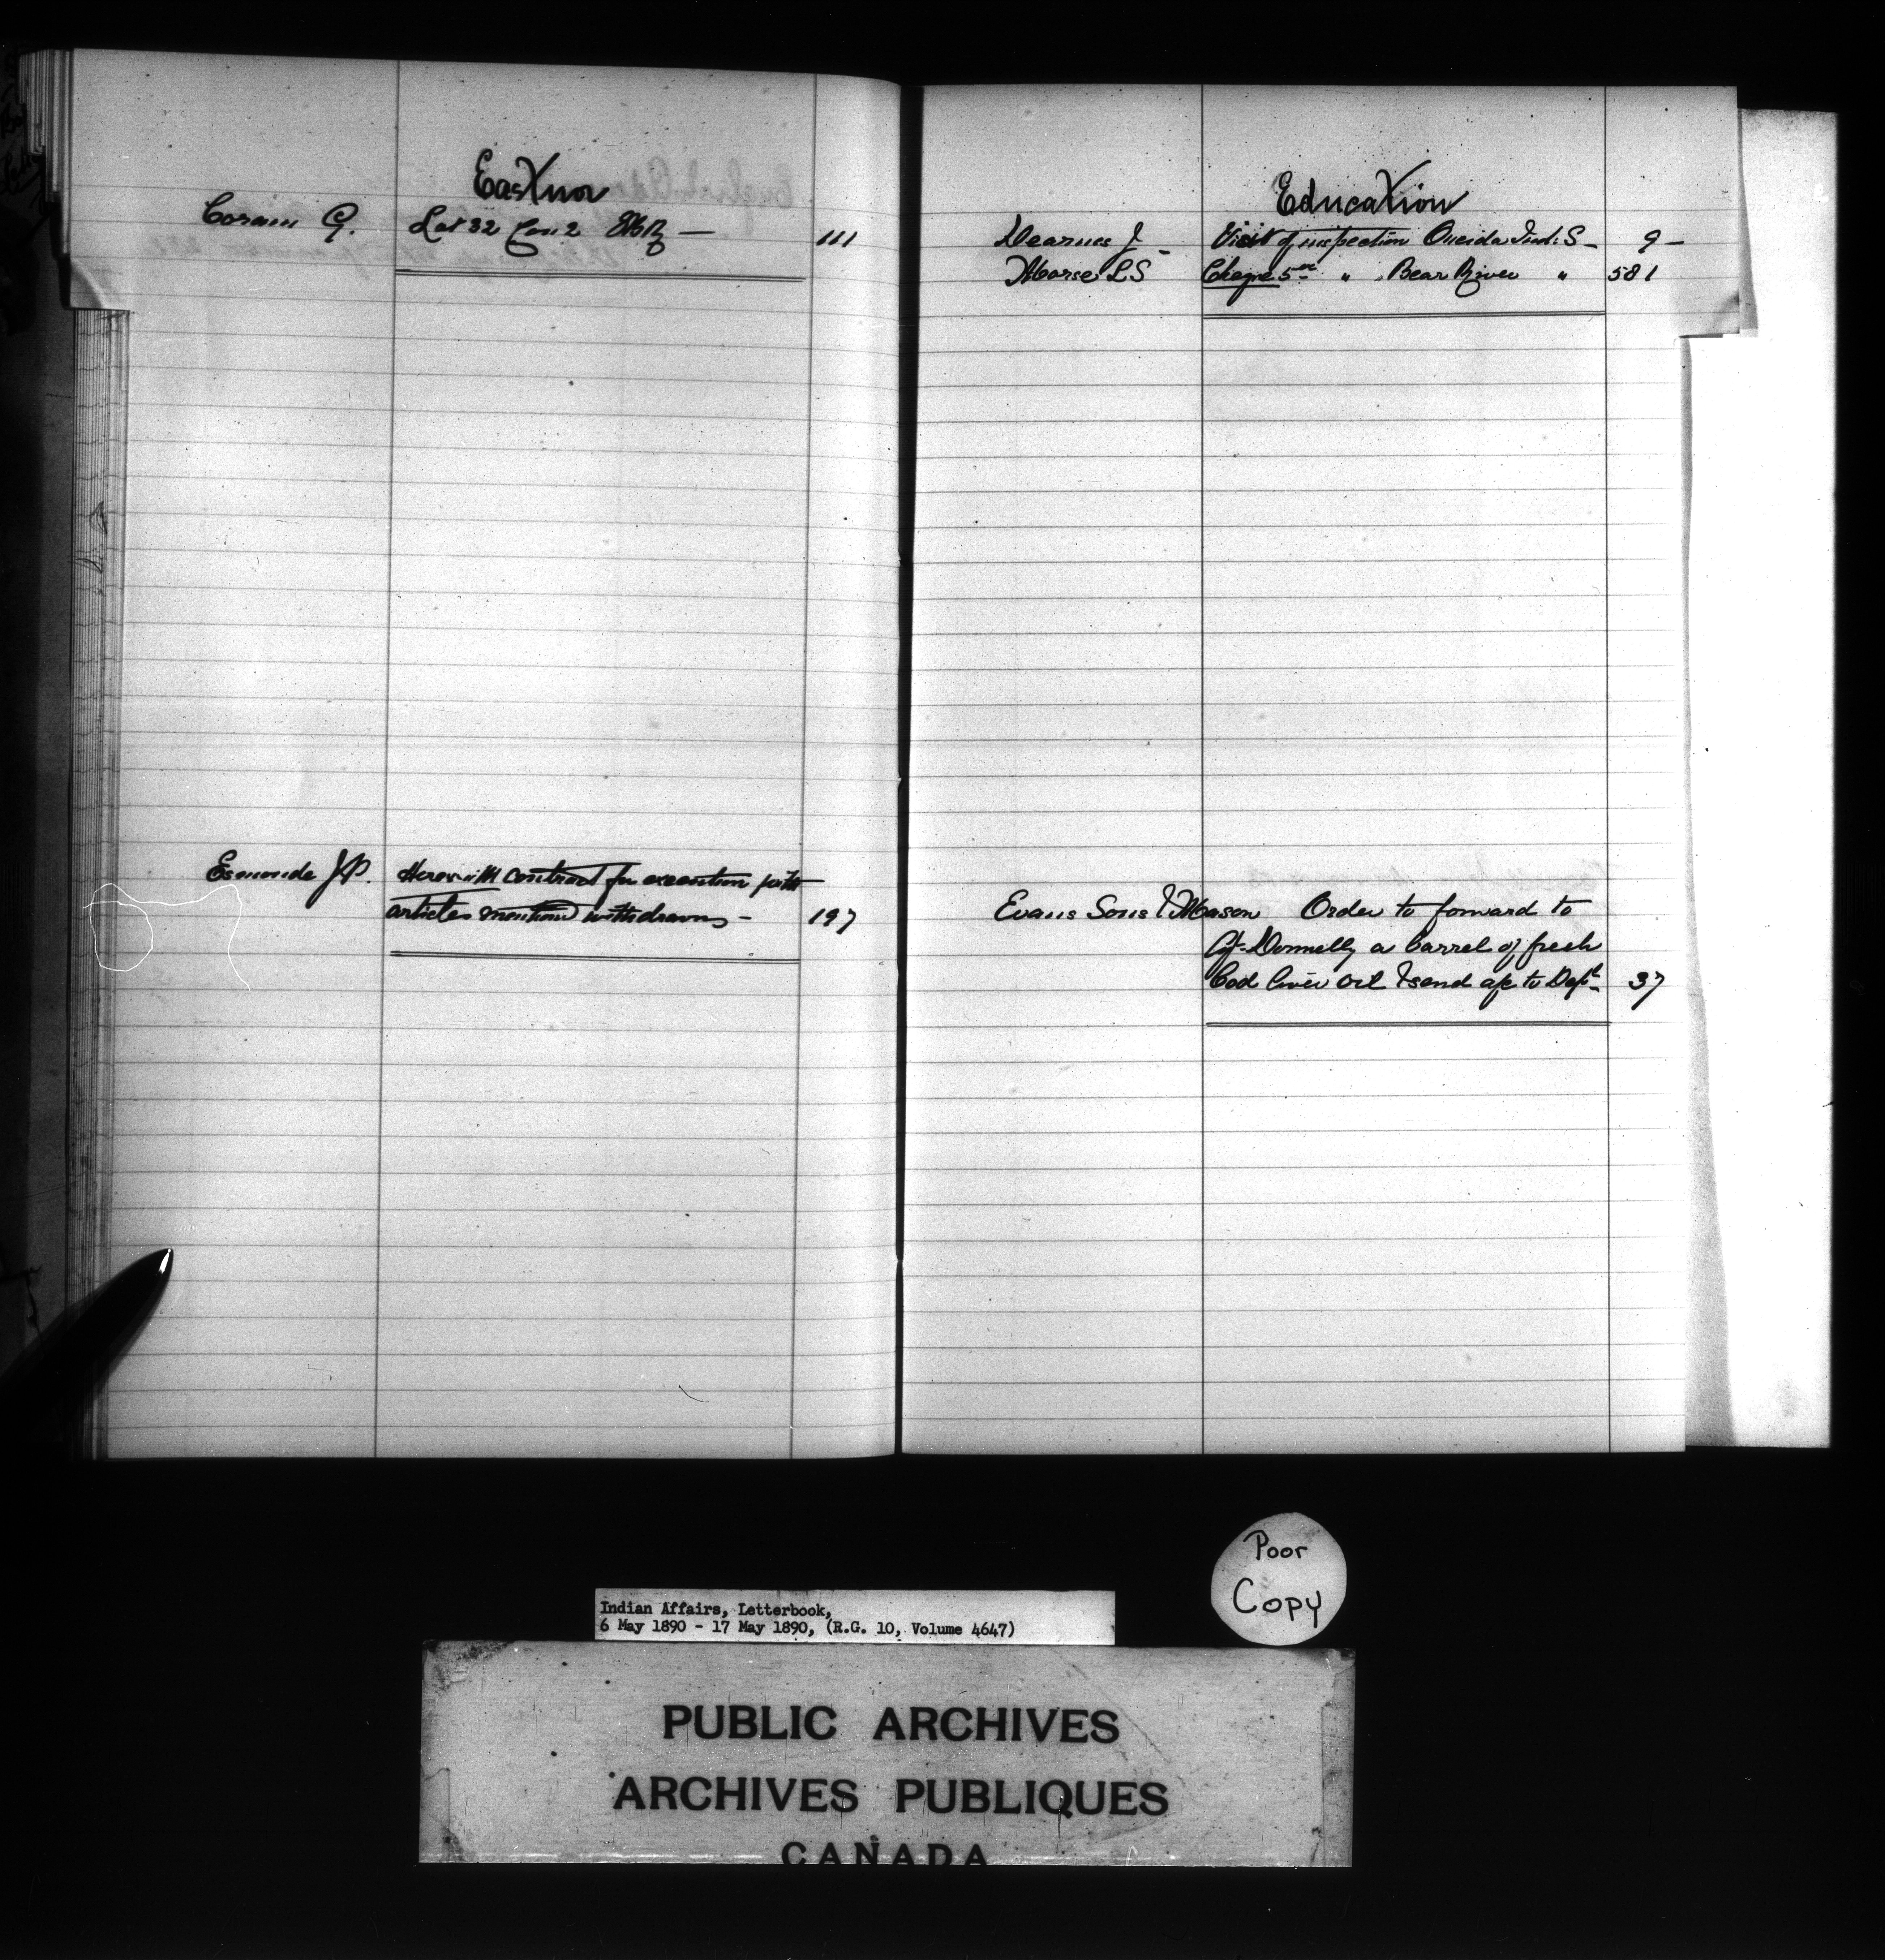 Eastnor
Coram G. Lot 32 Con 2 EBR — 111
Esmonde J.P. Herewith contract for execution
articles mentioned withdrawn — 197
Education
Dearness J — Visit of inspection Oneida Ind: S — 9 —
Morse L.S Cheque 5 " " Bear River " 581
Evans Sons & Mason Order to forward to
Donnelly a barrel of fresh
Cod liver oil & send a/c to Dept. 37
Poor
Copy
Indian Affairs, Letterbook,
6 May 1890 - 17 May 1890, (R.G. 10, Volume 4647)
PUBLIC ARCHIVES
ARCHIVES PUBLIQUES
CANADA